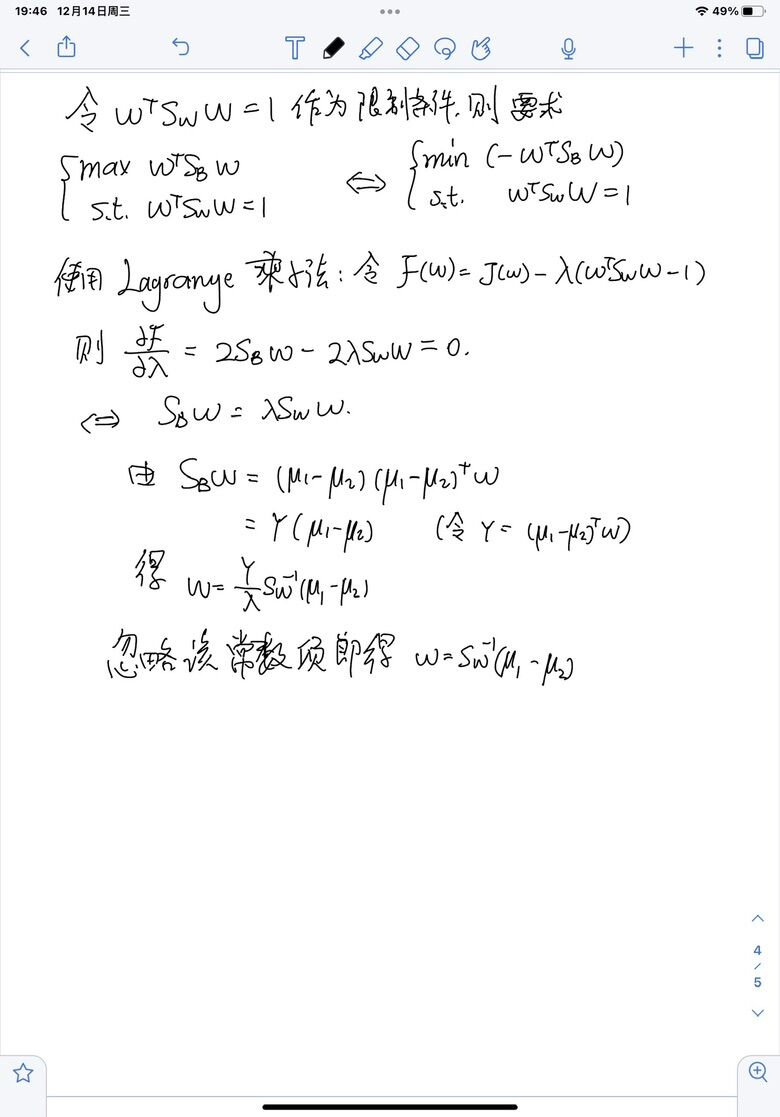 19:46 12月14日周三
49%
令 wᵀS_W w = 1 作为限制条件,则要求
{ max wᵀS_B w ⇔ { min (-wᵀS_B w)
s.t. wᵀS_W w = 1 s.t. wᵀS_W w = 1
使用 Lagrange 乘子法: 令 F(w) = J(w) - λ(wᵀS_W w - 1)
则 ∂F/∂λ = 2S_B w - 2λS_W w = 0.
⇔ S_B w = λS_W w.
由 S_B w = (μ₁-μ₂)(μ₁-μ₂)ᵀw
= γ(μ₁-μ₂) (令 γ = (μ₁-μ₂)ᵀw)
得 w = γ/λ S_W⁻¹(μ₁-μ₂)
忽略该常数项即得 w = S_W⁻¹(μ₁-μ₂)
4
/
5